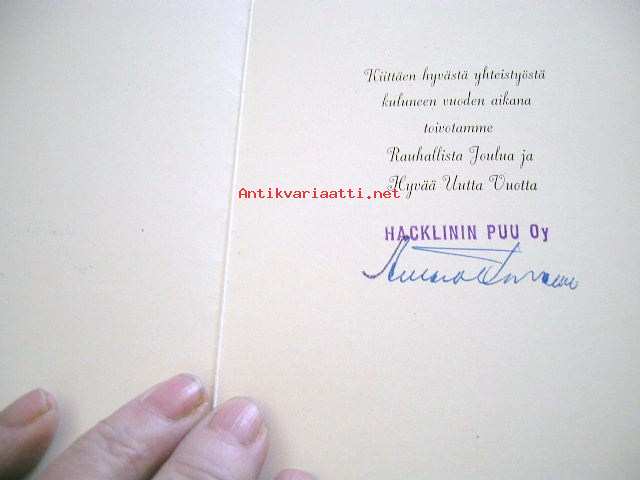 Kiittäen hyvästä yhteistyöstä
kuluneen vuoden aikana
toivotamme
Rauhallista Joulua ja
Hyvää Uutta Vuotta
Antikvariaatti.net
HACKLININ PUU Oy